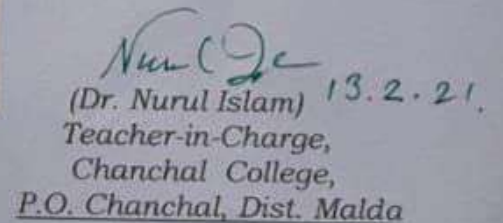 13.2.21.
(Dr. Nurul Islam)
Teacher-in-Charge,
Chanchal College,
P.O. Chanchal, Dist. Malda